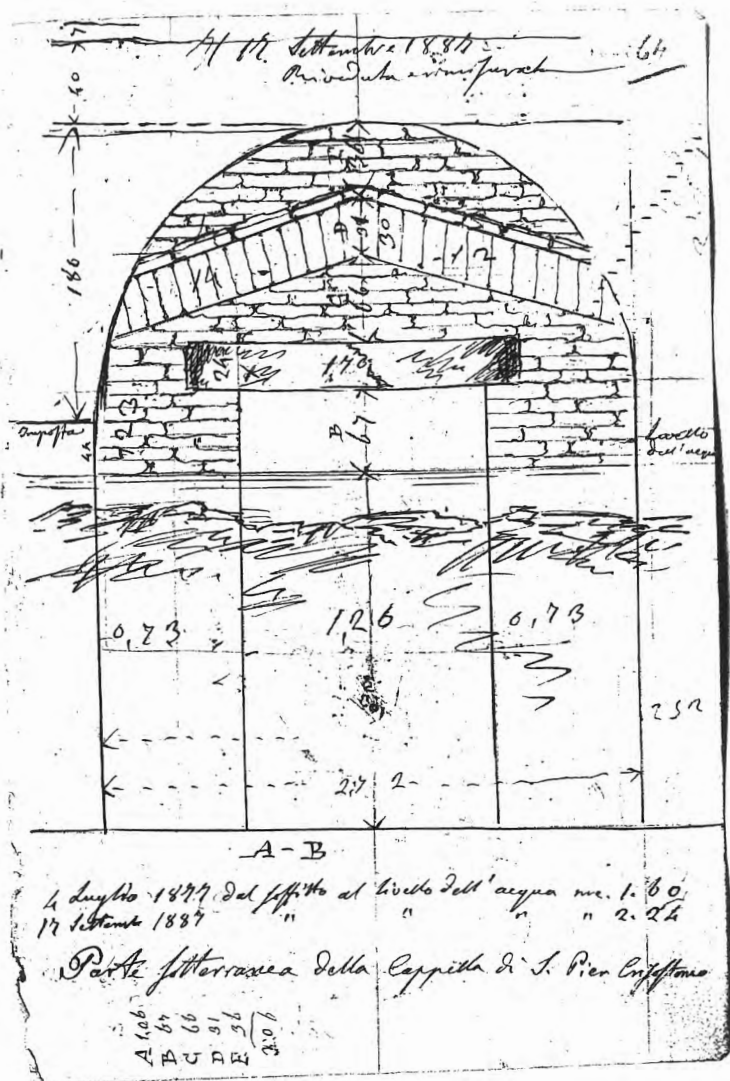 17 Settembre 1887
Riveduta e rimisurata
64
40
186
36
D 31
30
14
12
C 66
24
170
123
B 67
Imposta
Livello
dell'acqua
0,73
1,26
0,73
232
2,72
A - B
4 Luglio 1877 dal soffitto al livello dell'acqua me. 1.60
17 Settembre 1887 " " " " 2.24
Parte sotterranea della Cappella di S. Pier Crisostomo
A 1,06
B 67
C 66
D 31
E 36
3:06